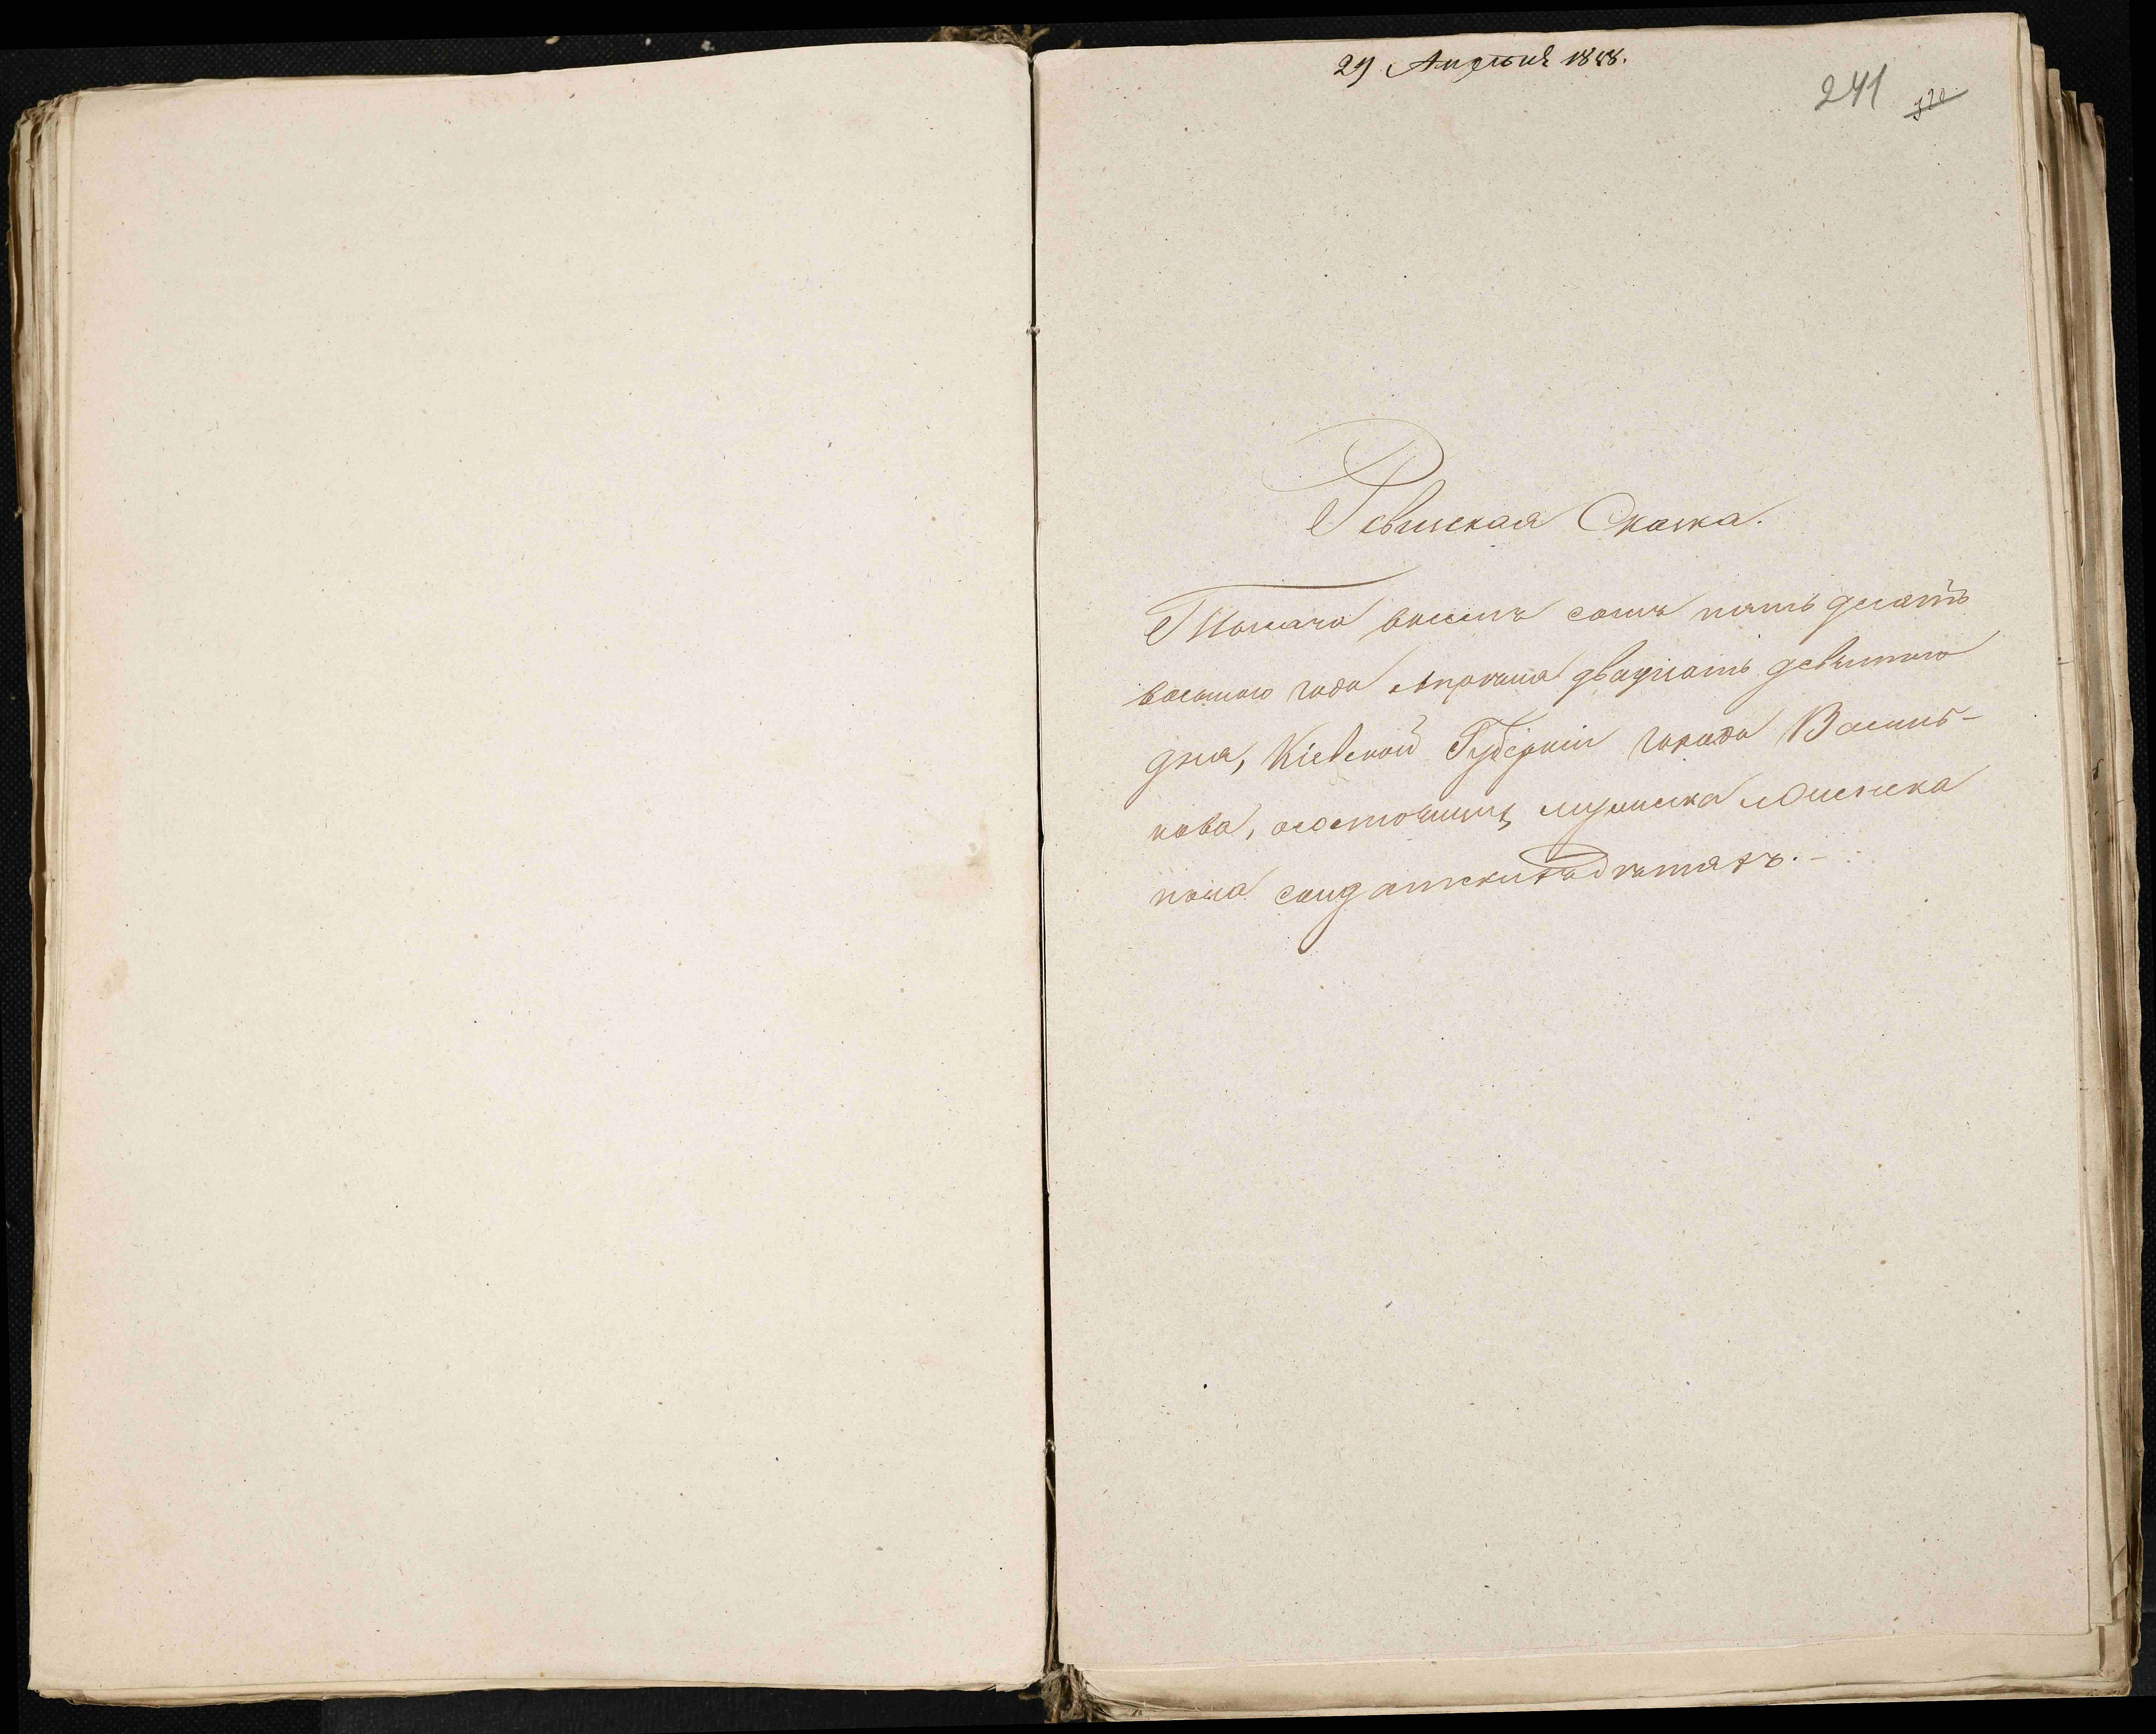 29 Апреля 1858.
241 320
Ревизская Сказка.
Тысяча восемь сотъ пять десятъ
восьмого года Апреля двадцать девятого
дня, Кіевской Губерніи города Василь-
кова, о состоящихъ мужеска и женска
пола солдатскихъ детяхъ.-